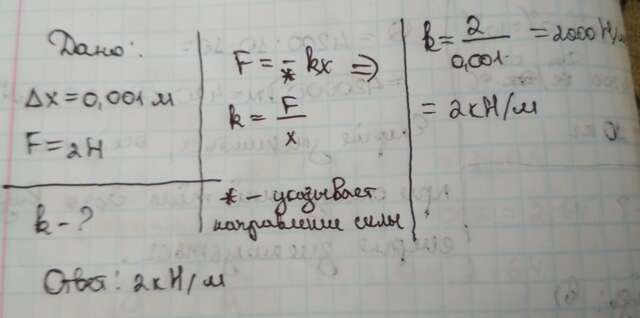 Дано:
Δx = 0,001 м
F = 2Н
k - ?
F = -* kx ⇒
k = F/x
* - указывает
направление силы
k = 2/0,001 = 2000 Н/м
= 2кН/м
Ответ: 2кН/м